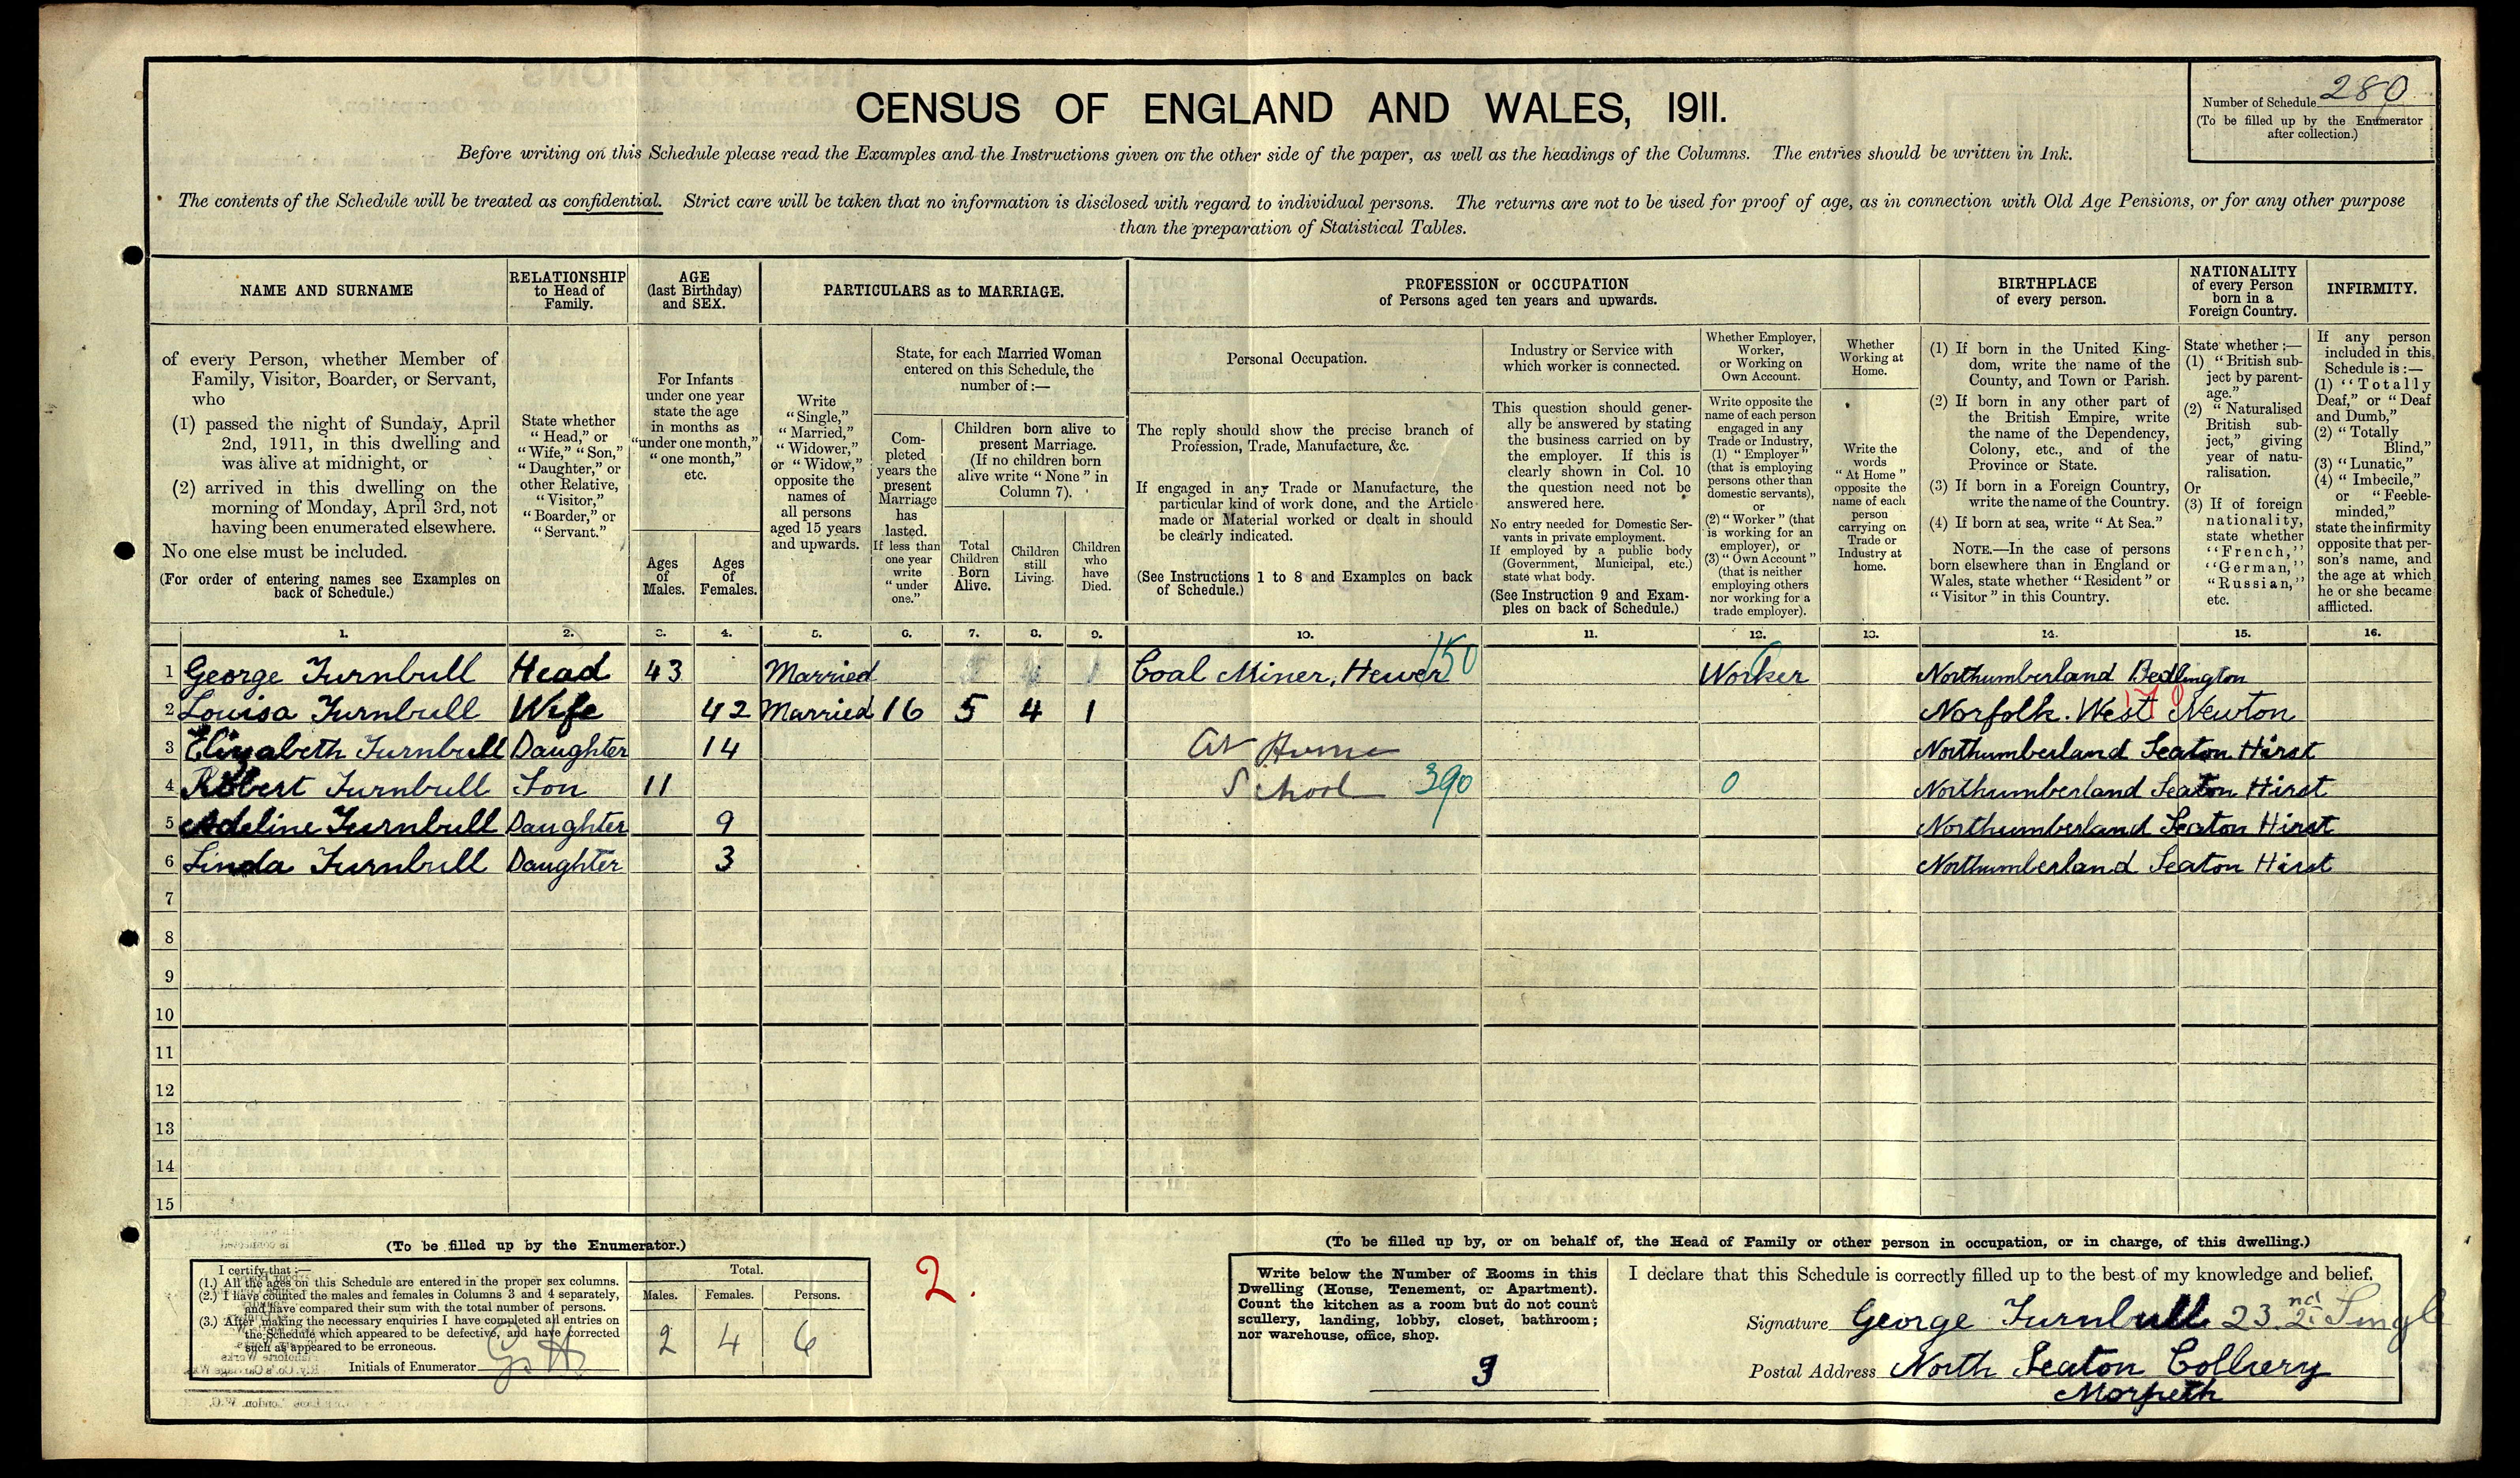 CENSUS OF ENGLAND AND WALES, 1911.
Number of Schedule 280
(To be filled up by the Enumerator
after collection.)
Before writing on this Schedule please read the Examples and the Instructions given on the other side of the paper, as well as the headings of the Columns. The entries should be written in Ink.
The contents of the Schedule will be treated as confidential. Strict care will be taken that no information is disclosed with regard to individual persons. The returns are not to be used for proof of age, as in connection with Old Age Pensions, or for any other purpose
than the preparation of Statistical Tables.
NAME AND SURNAME
of every Person, whether Member of
Family, Visitor, Boarder, or Servant,
who
(1) passed the night of Sunday, April
2nd, 1911, in this dwelling and
was alive at midnight, or
(2) arrived in this dwelling on the
morning of Monday, April 3rd, not
having been enumerated elsewhere.
No one else must be included.
(For order of entering names see Examples on
back of Schedule.)
RELATIONSHIP
to Head of
Family.
State whether
"Head," or
"Wife," "Son,"
"Daughter," or
other Relative,
"Visitor,"
"Boarder," or
"Servant."
AGE
(last Birthday)
and SEX.
For Infants
under one year
state the age
in months as
"under one month,"
"one month,"
etc.
Ages
of
Males.
Ages
of
Females.
PARTICULARS as to MARRIAGE.
Write
"Single,"
"Married,"
"Widower,"
or "Widow,"
opposite the
names of
all persons
aged 15 years
and upwards.
State, for each Married Woman
entered on this Schedule, the
number of:—
Com-
pleted
years the
present
Marriage
has
lasted.
If less than
one year
write
"under
one."
Children born alive to
present Marriage.
(If no children born
alive write "None" in
Column 7).
Total
Children
Born
Alive.
Children
still
Living.
Children
who
have
Died.
PROFESSION or OCCUPATION
of Persons aged ten years and upwards.
Personal Occupation.
The reply should show the precise branch of
Profession, Trade, Manufacture, &c.
If engaged in any Trade or Manufacture, the
particular kind of work done, and the Article
made or Material worked or dealt in should
be clearly indicated.
(See Instructions 1 to 8 and Examples on back
of Schedule.)
Industry or Service with
which worker is connected.
This question should gener-
ally be answered by stating
the business carried on by
the employer. If this is
clearly shown in Col. 10
the question need not be
answered here.
No entry needed for Domestic Ser-
vants in private employment.
If employed by a public body
(Government, Municipal, etc.)
state what body.
(See Instruction 9 and Exam-
ples on back of Schedule.)
Whether Employer,
Worker,
or Working on
Own Account.
Write opposite the
name of each person
engaged in any
Trade or Industry,
(1) "Employer"
(that is employing
persons other than
domestic servants),
or
(2) "Worker" (that
is working for an
employer), or
(3) "Own Account"
(that is neither
employing others
nor working for a
trade employer).
Whether
Working at
Home.
Write the
words
"At Home"
opposite the
name of each
person
carrying on
Trade or
Industry at
home.
BIRTHPLACE
of every person.
(1) If born in the United King-
dom, write the name of the
County, and Town or Parish.
(2) If born in any other part of
the British Empire, write
the name of the Dependency,
Colony, etc., and of the
Province or State.
(3) If born in a Foreign Country,
write the name of the Country.
(4) If born at sea, write "At Sea."
NOTE.—In the case of persons
born elsewhere than in England or
Wales, state whether "Resident" or
"Visitor" in this Country.
NATIONALITY
of every Person
born in a
Foreign Country.
State whether :—
(1) "British sub-
ject by parent-
age."
(2) "Naturalised
British sub-
ject," giving
year of natu-
ralisation.
Or
(3) If of foreign
nationality,
state whether
"French,"
"German,"
"Russian,"
etc.
INFIRMITY.
If any person
included in this
Schedule is :—
(1) "Totally
Deaf," or "Deaf
and Dumb,"
(2) "Totally
Blind,"
(3) "Lunatic,"
(4) "Imbecile,"
or "Feeble-
minded,"
state the infirmity
opposite that per-
son's name, and
the age at which
he or she became
afflicted.
1. 2. 3. 4. 5. 6. 7. 8. 9. 10. 11. 12. 13. 14. 15. 16.
1 George Turnbull Head 43 Married Coal Miner, Hewer 150 Worker Northumberland Bedlington
2 Louisa Turnbull Wife 42 Married 16 5 4 1 Norfolk. West Newton
3 Elizabeth Turnbull Daughter 14 At Home Northumberland Seaton Hirst
4 Robert Turnbull Son 11 School 390 0 Northumberland Seaton Hirst
5 Adeline Turnbull Daughter 9 Northumberland Seaton Hirst
6 Linda Turnbull Daughter 3 Northumberland Seaton Hirst
7
8
9
10
11
12
13
14
15
(To be filled up by the Enumerator.)
I certify that :—
(1.) All the ages on this Schedule are entered in the proper sex columns.
(2.) I have counted the males and females in Columns 3 and 4 separately,
and have compared their sum with the total number of persons.
(3.) After making the necessary enquiries I have completed all entries on
the Schedule which appeared to be defective, and have corrected
such as appeared to be erroneous.
Initials of Enumerator
Total.
Males. Females. Persons.
2 4 6
2.
(To be filled up by, or on behalf of, the Head of Family or other person in occupation, or in charge, of this dwelling.)
Write below the Number of Rooms in this
Dwelling (House, Tenement, or Apartment).
Count the kitchen as a room but do not count
scullery, landing, lobby, closet, bathroom;
nor warehouse, office, shop.
3
I declare that this Schedule is correctly filled up to the best of my knowledge and belief.
Signature George Turnbull 23 2nd Singl
Postal Address North Seaton Colliery
Morpeth